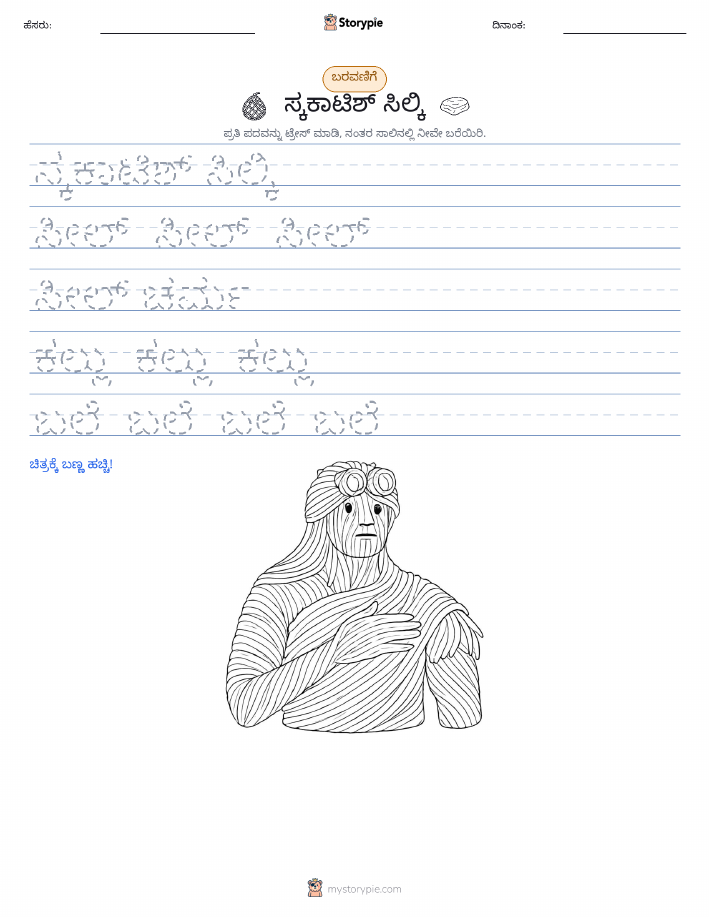 ಹೆಸರು:
Storypie
ದಿನಾಂಕ:
ಬರವಣಿಗೆ
ಸ್ಕಕಾಟಿಶ್ ಸಿಲ್ಕಿ
ಪ್ರತಿ ಪದವನ್ನು ಟ್ರೇಸ್ ಮಾಡಿ, ನಂತರ ಸಾಲಿನಲ್ಲಿ ನೀವೇ ಬರೆಯಿರಿ.
ಸ್ಕಕಾಟಿಶ್ ಸಿಲ್ಕಿ
ಸೀಲ್ ಸೀಲ್ ಸೀಲ್
ಸೀಲ್ ಚರ್ಮ
ಕಲ್ಲು ಕಲ್ಲು ಕಲ್ಲು
ಬಲೆ ಬಲೆ ಬಲೆ ಬಲೆ
ಚಿತ್ರಕ್ಕೆ ಬಣ್ಣ ಹಚ್ಚಿ!
mystorypie.com